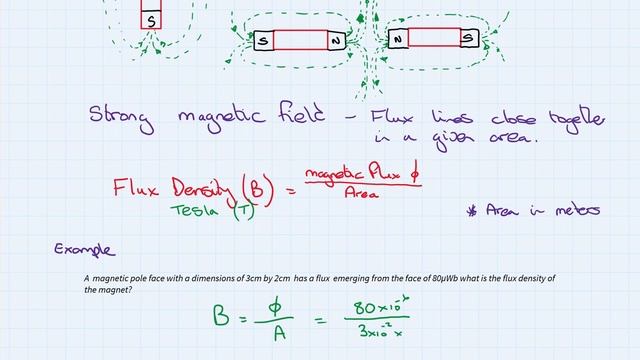 S
S N N S
Strong magnetic field - Flux lines close together
in a given area.
Flux Density (B) = magnetic flux ϕ / Area
Tesla (T)
* Area in meters
Example
A magnetic pole face with a dimensions of 3cm by 2cm has a flux emerging from the face of 80μWb what is the flux density of
the magnet?
B = ϕ / A = 80x10⁻⁶ / 3x10⁻² x